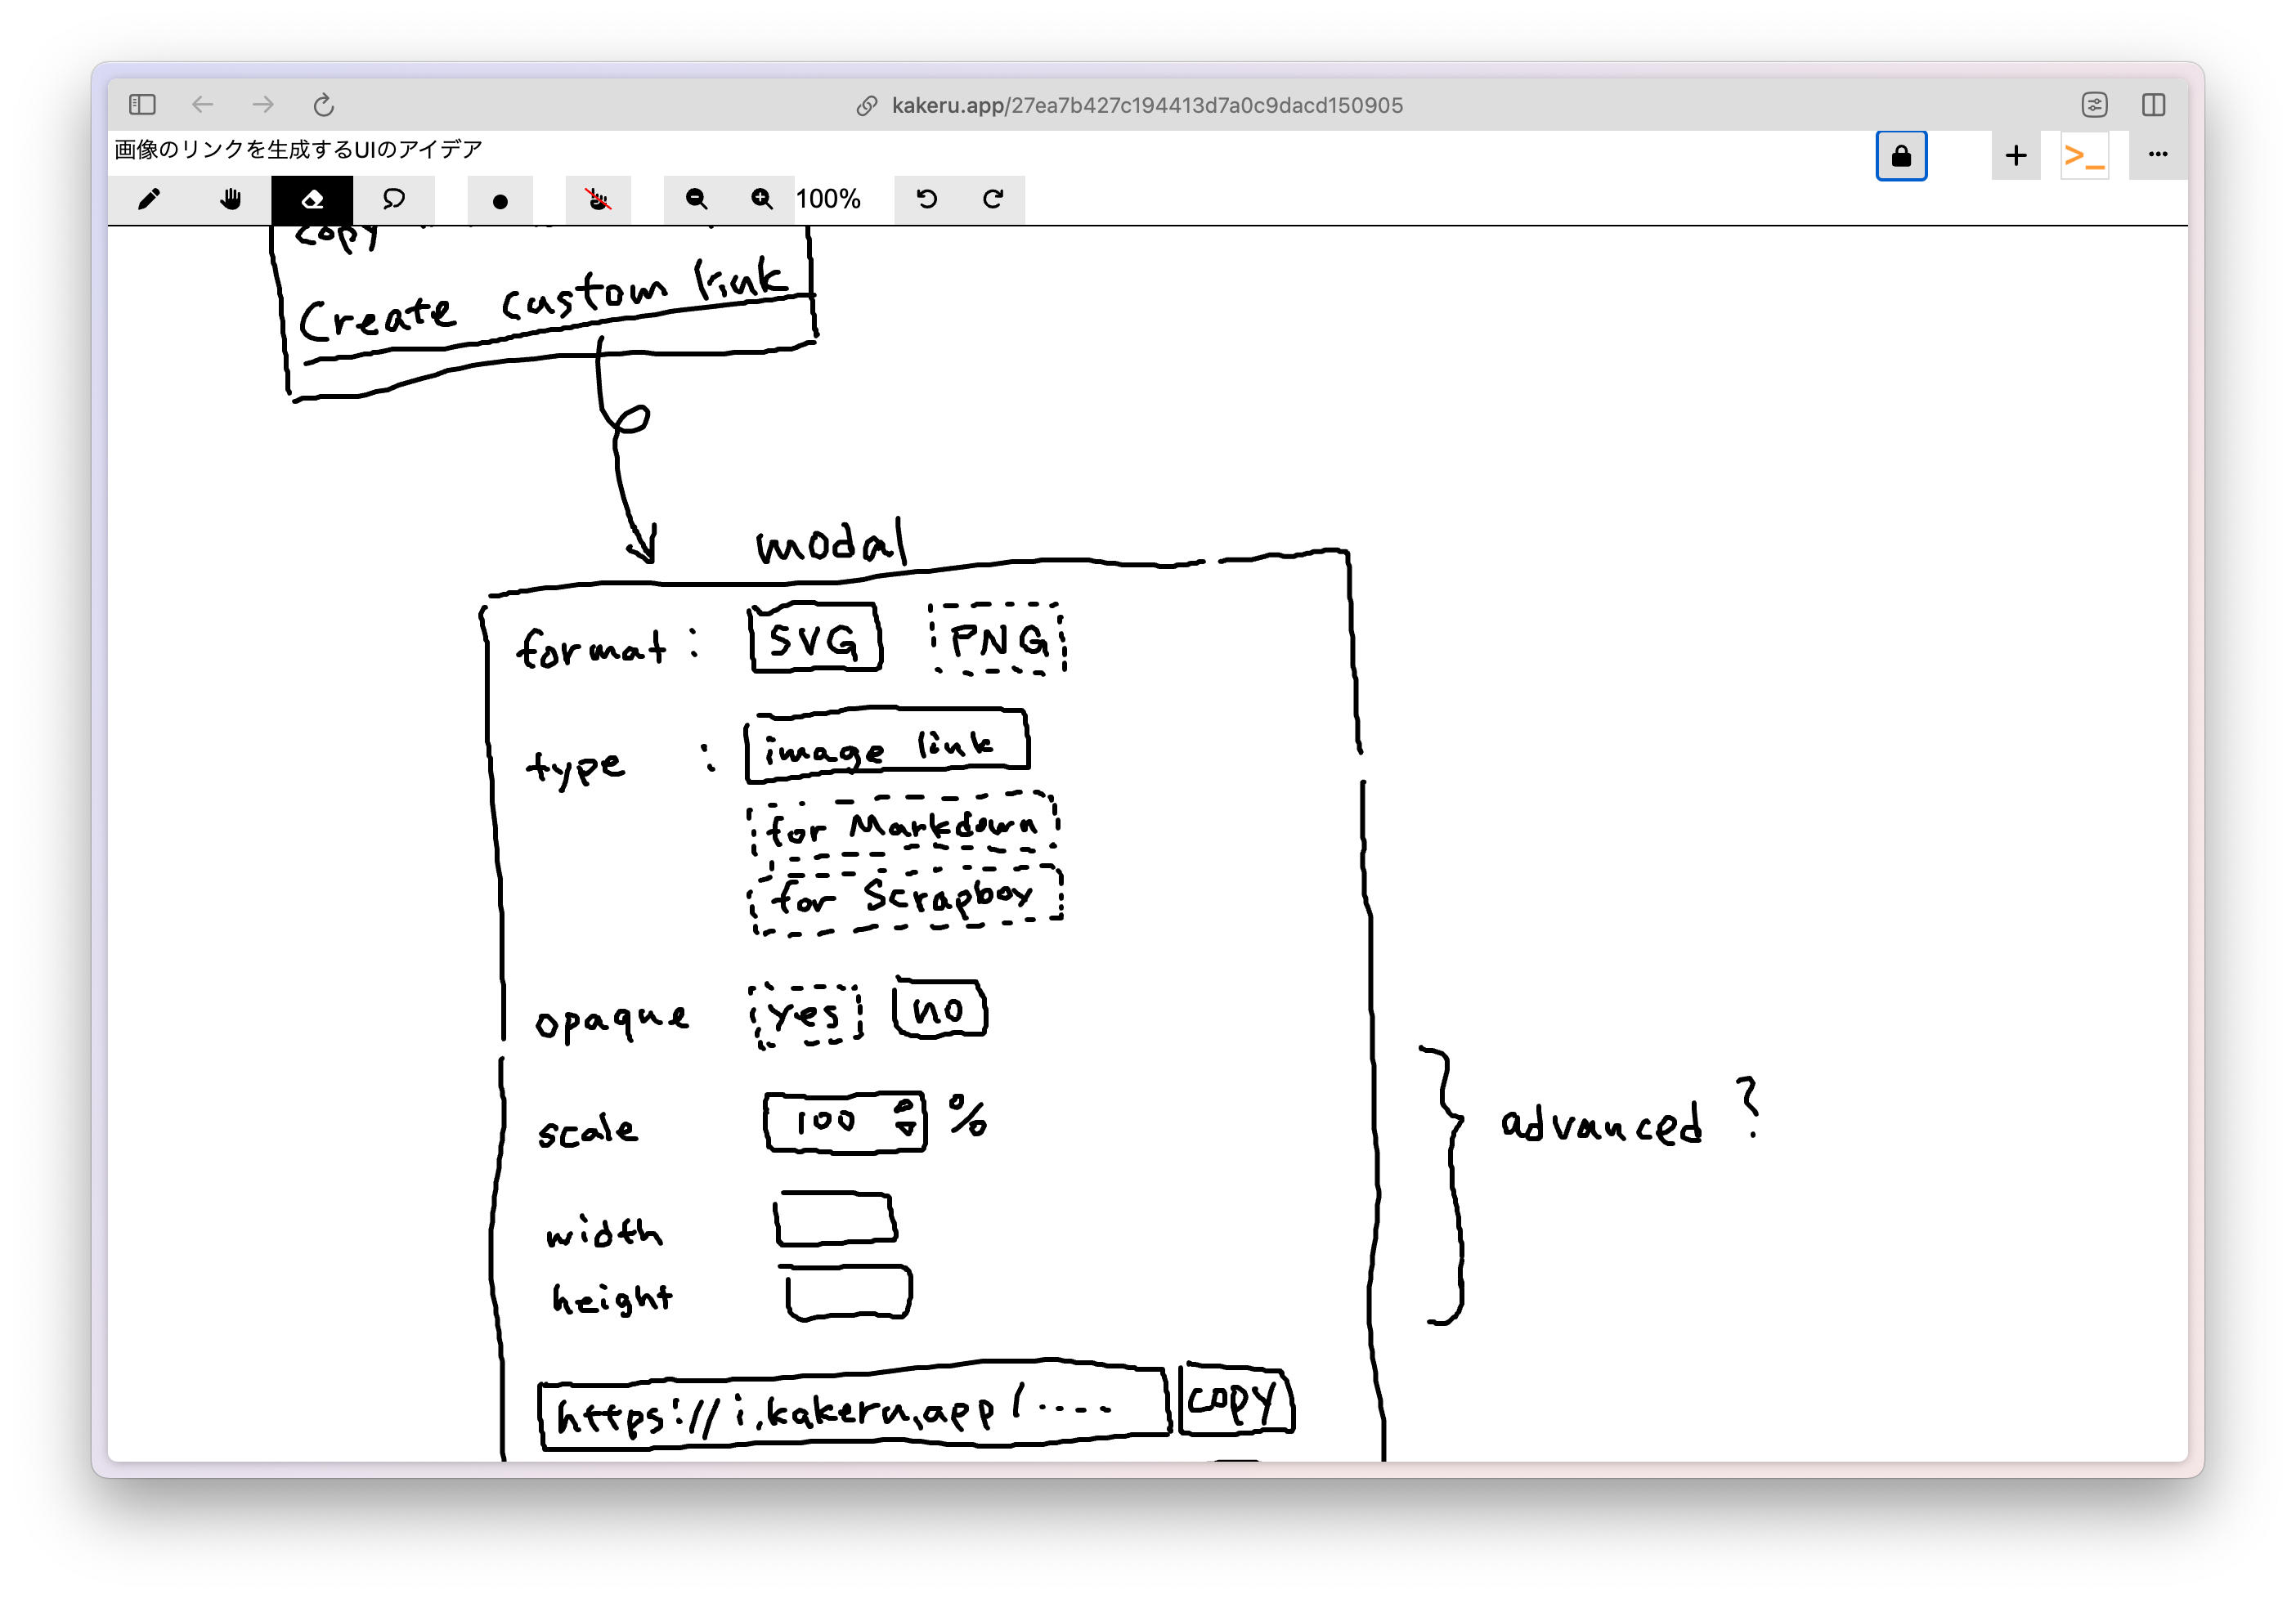 kakeru.app/27ea7b427c194413d7a0c9dacd150905
画像のリンクを生成するUIのアイデア
100%
copy
Create custom link
modal
format : SVG PNG
type : image link
for Markdown
for Scrapbox
opaque yes no
scale 100 %
advanced ?
width
height
https://i.kakeru.app/.... copy